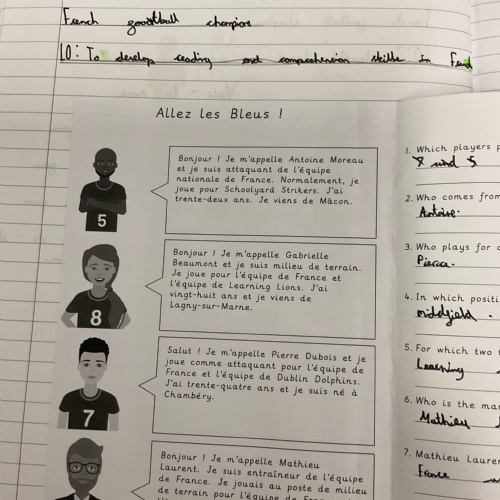 French gootball champions
LO: To develop reading and comprehension skills in
Allez les Bleus !
5
Bonjour ! Je m'appelle Antoine Moreau
et je suis attaquant de l'équipe
nationale de France. Normalement, je
joue pour Schoolyard Strikers. J'ai
trente-deux ans. Je viens de Mâcon.
8
Bonjour ! Je m'appelle Gabrielle
Beaumont et je suis milieu de terrain.
Je joue pour l'équipe de France et
l'équipe de Learning Lions. J'ai
vingt-huit ans et je viens de
Lagny-sur-Marne.
7
Salut ! Je m'appelle Pierre Dubois et je
joue comme attaquant pour l'équipe de
France et l'équipe de Dublin Dolphins.
J'ai trente-quatre ans et je suis né à
Chambéry.
Bonjour ! Je m'appelle Mathieu
Laurent. Je suis entraîneur de l'équipe
de France. Je jouais au poste de milieu
de terrain pour l'équipe de
1. Which players
and 5
2. Who comes from
Antoine.
3. Who plays for
Pierra.
4. In which
middjield.
5. For which two
Learning
6. Who is the
Mathieu
7. Mathieu
France